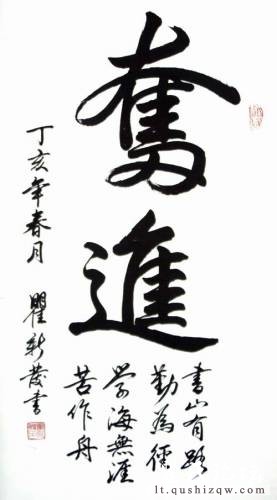 奮進
書山有路
勤為徑
學海無涯
苦作舟
丁亥年春月
瞿新發書
lt.qushizqw.com